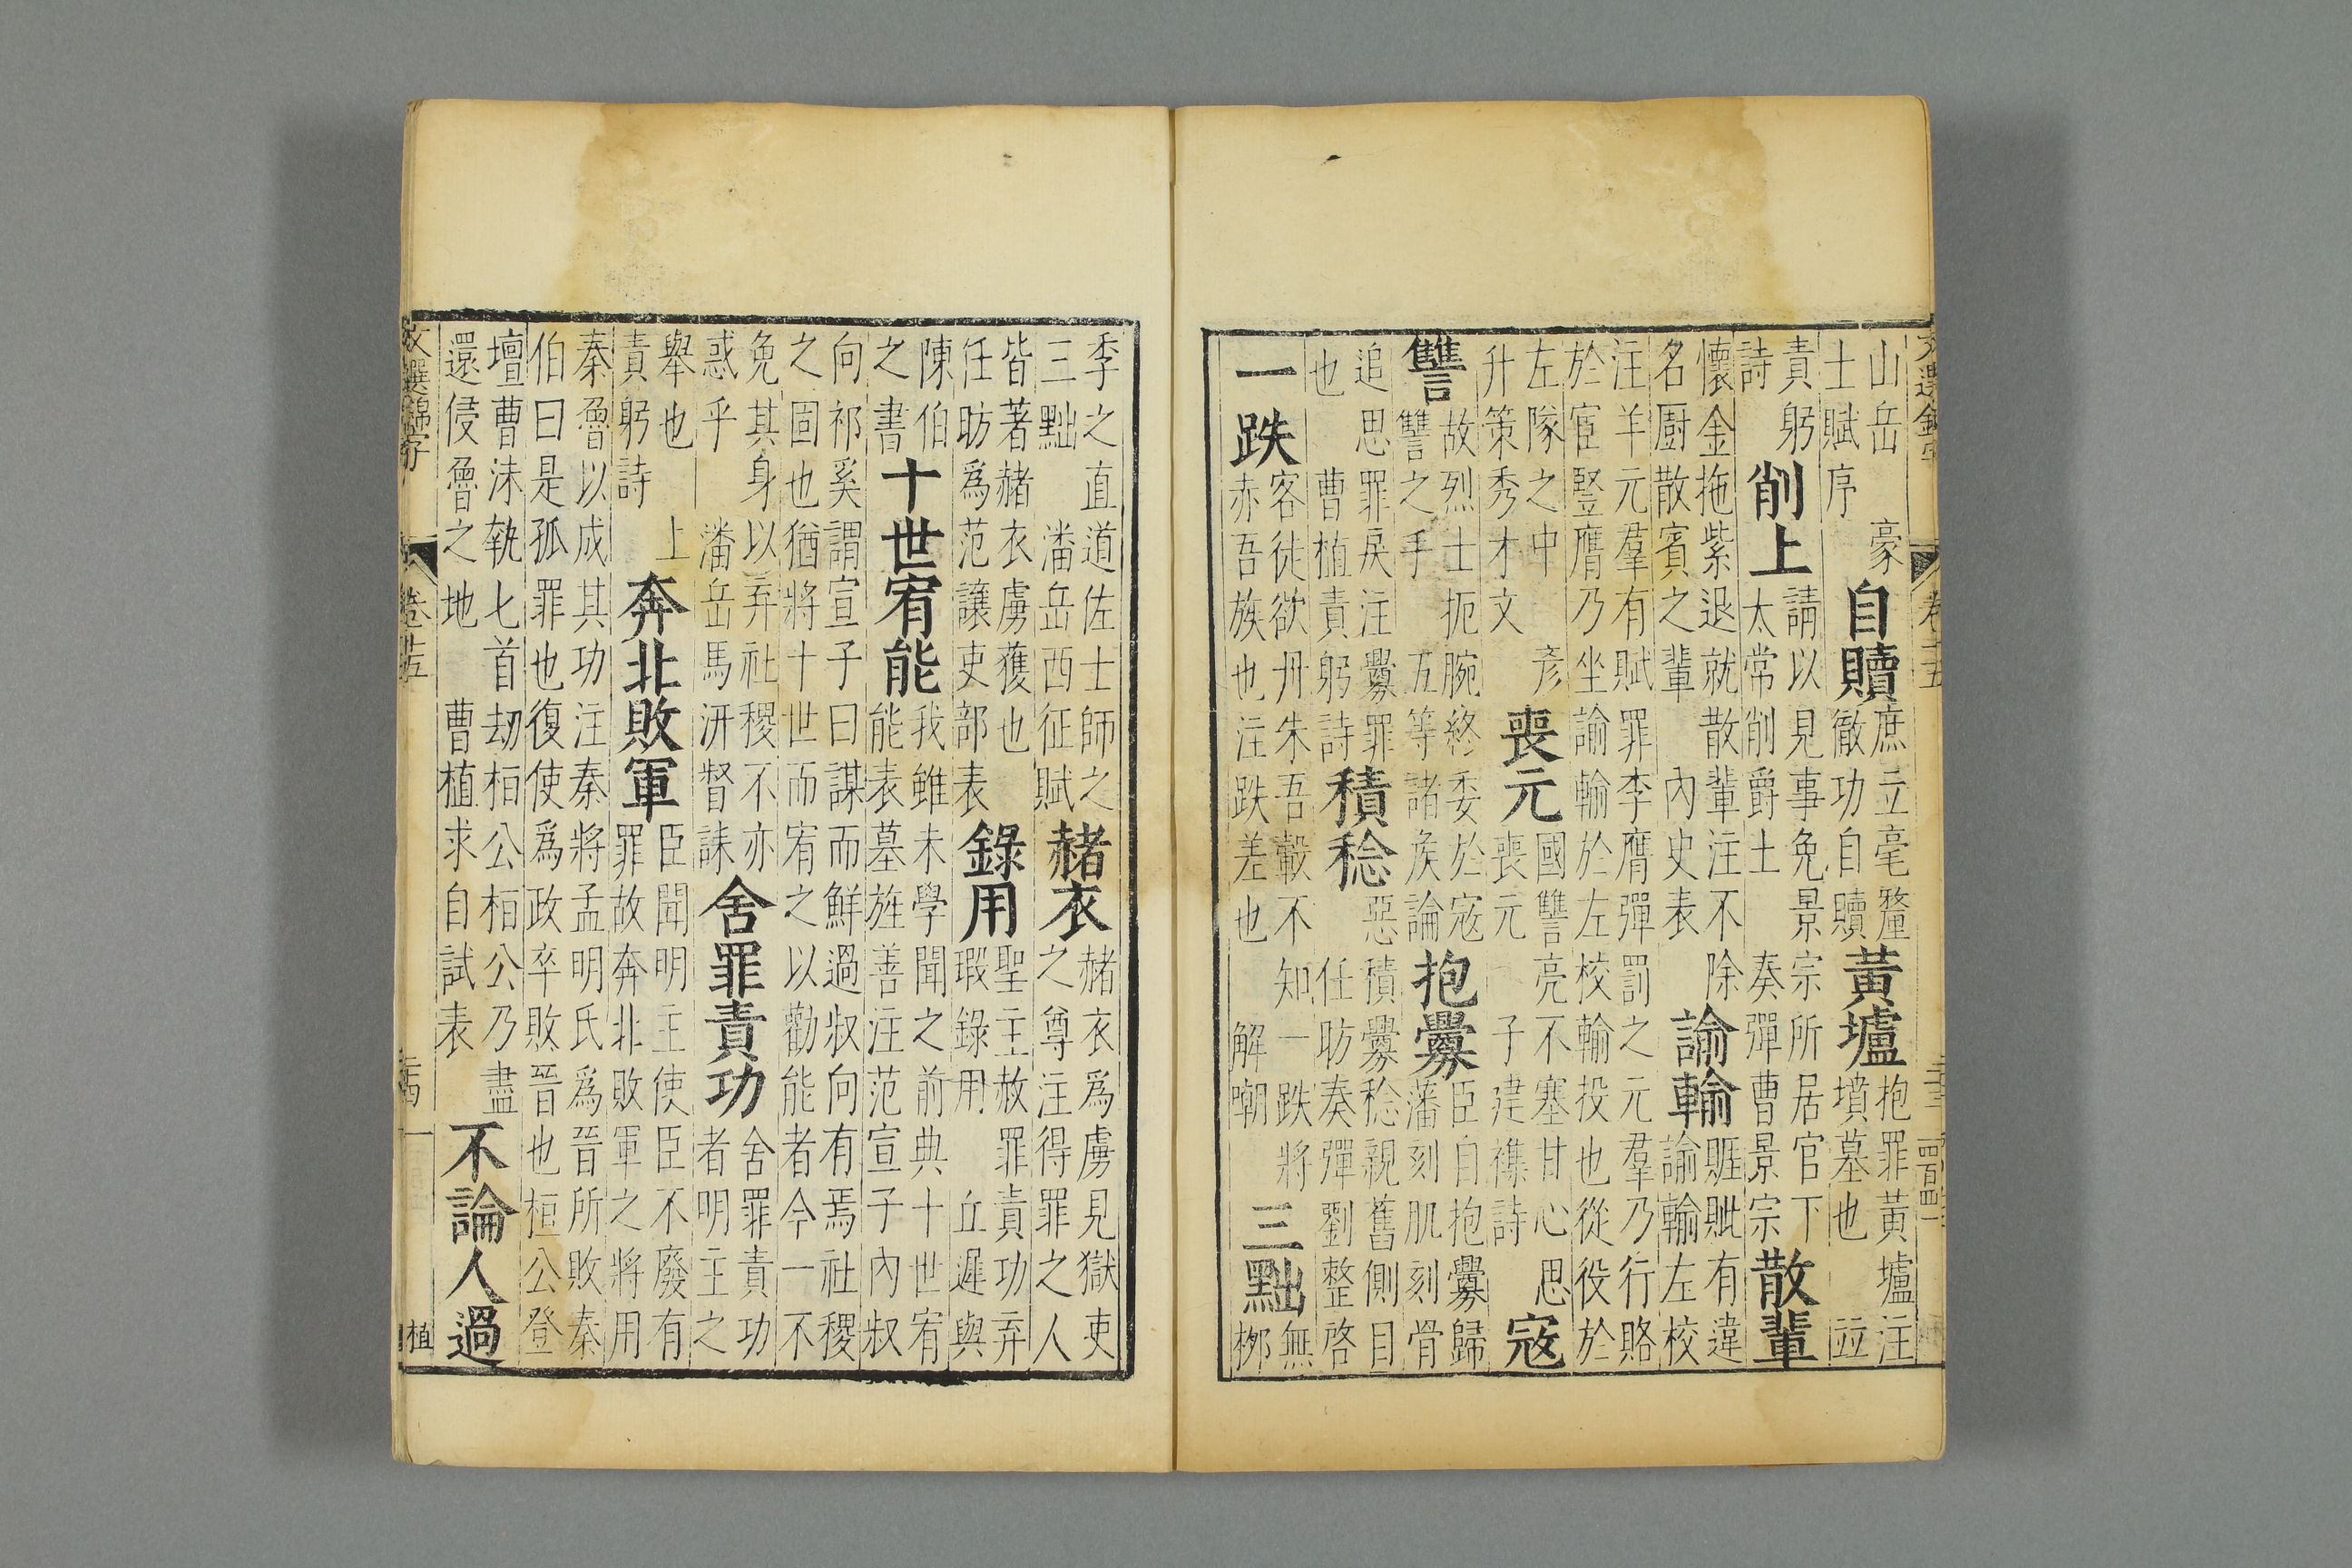 文選錦字
卷二五
四百四一
山岳　豪
士賦序
自贖
庶立毫釐
徹功自贖
黃壚
抱罪黃壚注
墳墓也　竝
責躬
詩
削上
請以見事免景宗所居官下
太常削爵土　奏彈曹景宗
散輩
懷金拖紫退就散輩注不除
名厨散賓之輩　內史表
諭輸
有違
諭輸左校
注羊元羣有賦罪李膺彈罰之元羣乃行賂
於宦豎膺乃坐諭輸於左校輸投也從役於
左隊之中　彥
升策秀才文
喪元
國讐亮不塞甘心思
喪元　子建襍詩
寇
讐
故烈士扼腕終委於寇
讐之手　五等諸侯論
抱釁
臣自抱釁歸
藩刻肌刻骨
追思罪戾注釁罪
也　曹植責躬詩
積稔
惡積釁稔親舊側目
任昉奏彈劉整啓
一跌
客徒欲丹朱吾轂不知一跌將
赤吾族也注跌差也　解嘲
三黜
無
栁
季之直道佐士師之
三黜　潘岳西征賦
赭衣
赭衣爲虜見獄吏
之尊注得罪之人
皆著赭衣虜獲也
任昉爲范讓吏部表
錄用
聖主赦罪責功弃
瑕錄用　丘遲與
陳伯
之書
十世宥能
我雖未學聞之前典十世宥
能表墓旌善注范宣子內叔
向祁奚謂宣子曰謀而鮮過叔向有焉社稷
之固也猶將十世而宥之以勸能者今一不
免其身以弃社稷不亦
惑乎　潘岳馬汧督誄
舍罪責功
舍罪責功
者明主之
舉也　上
責躬詩
奔北敗軍
臣聞明主使臣不廢有
罪故奔北敗軍之將用
秦魯以成其功注秦將孟明氏爲晉所敗秦
伯曰是孤罪也復使爲政卒敗晉也桓公登
壇曹沫執匕首刧桓公桓公乃盡
還侵魯之地　曹植求自試表
不論人過
文選錦字
卷廿五
植